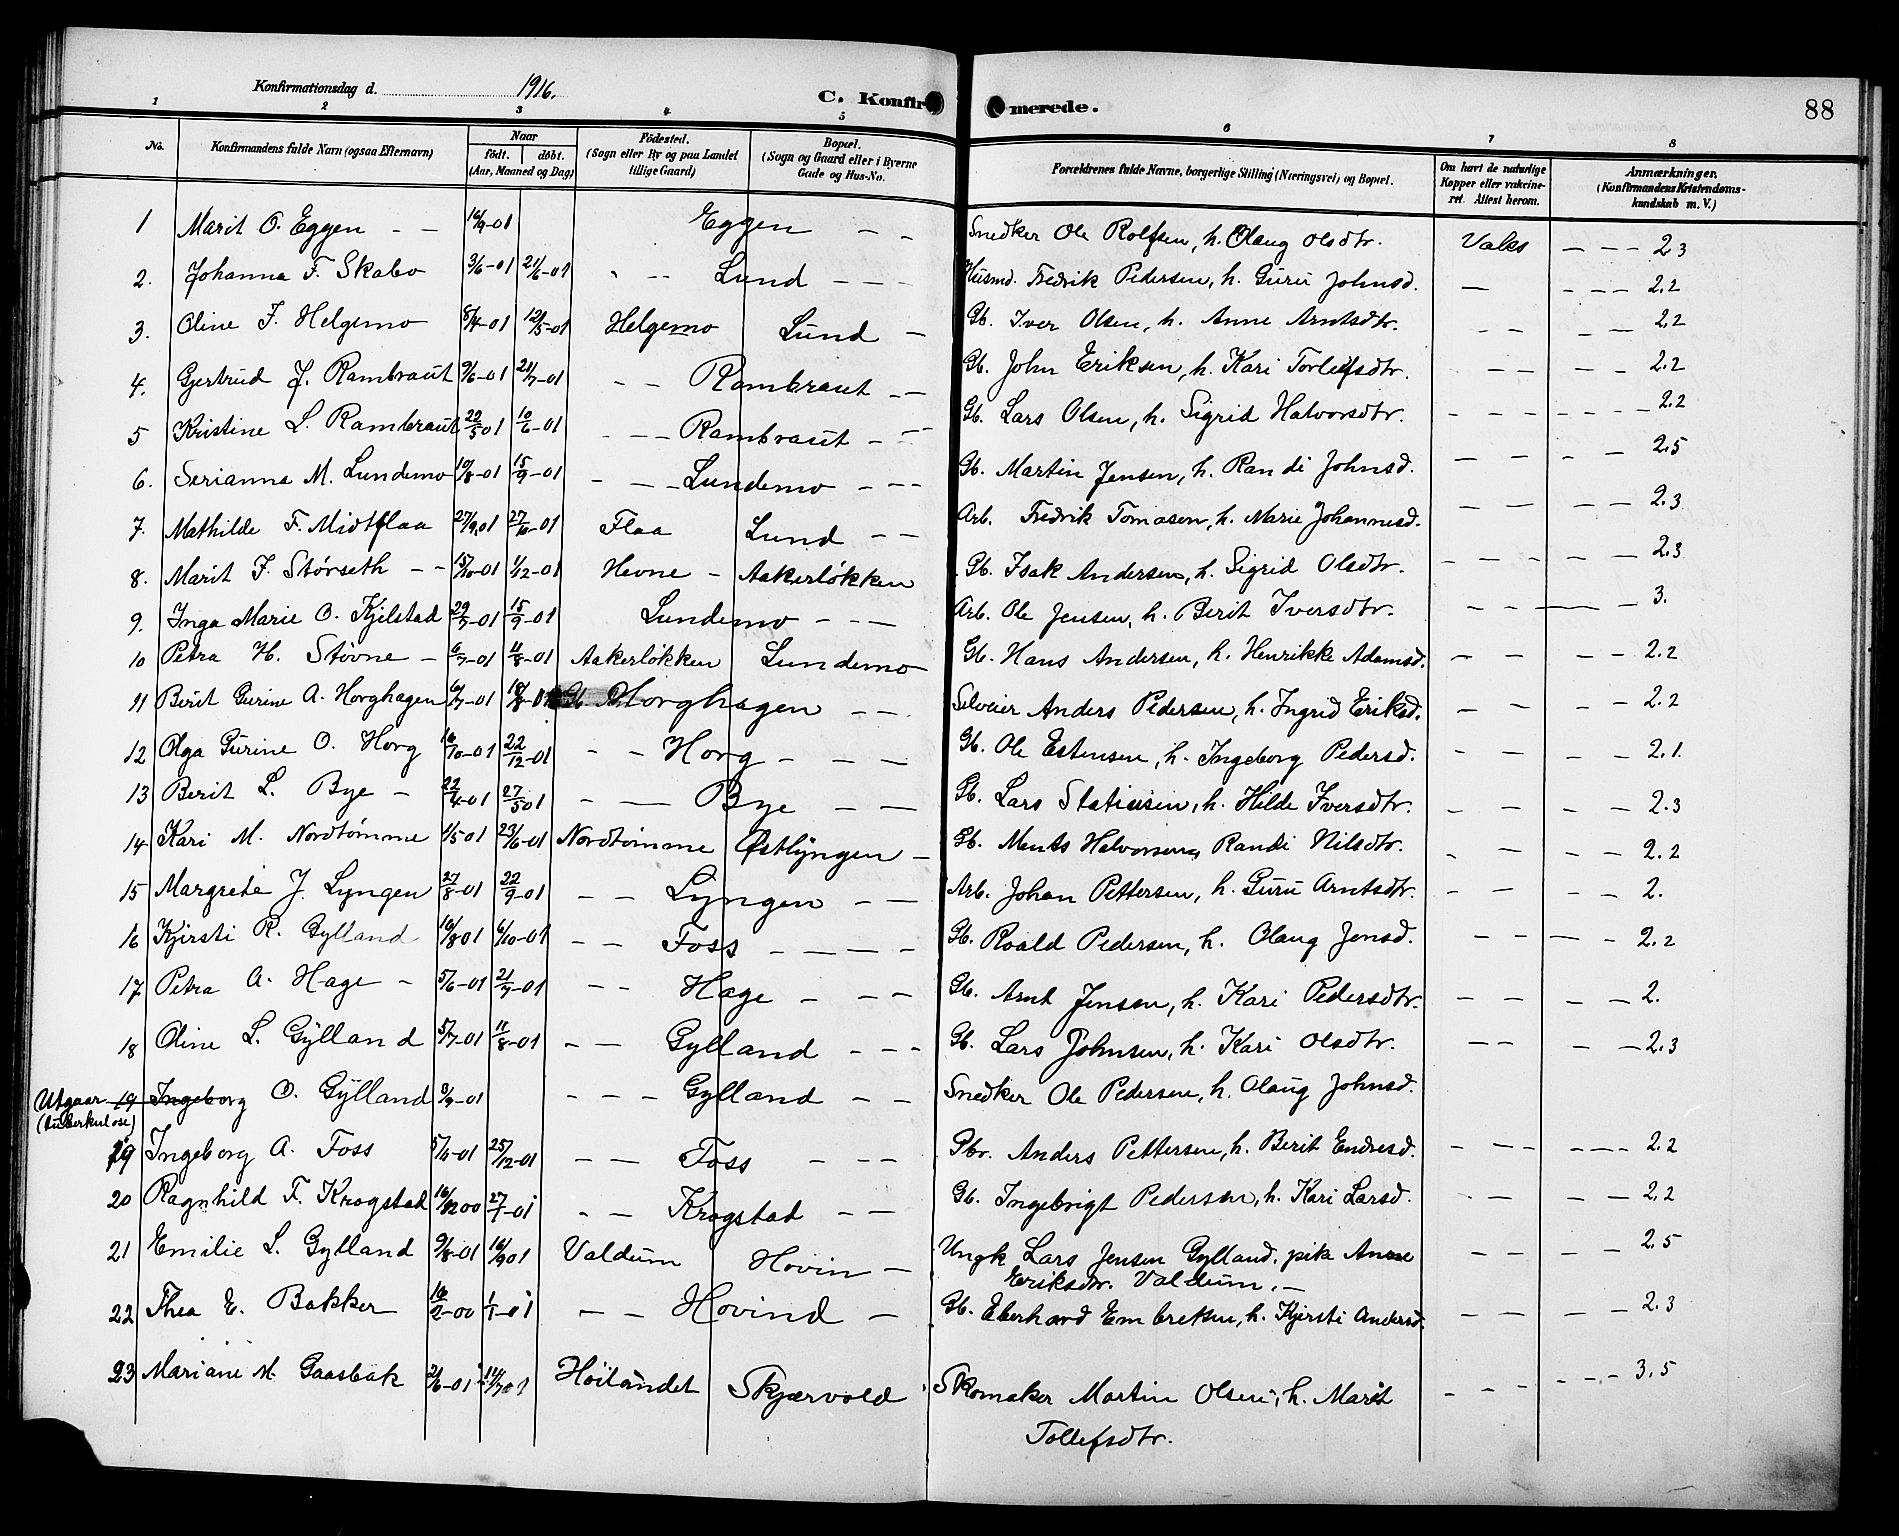 Konfirmationsdag d. 1916.
C. Konfirmerede.
88
1 2 3 4 5 6 7 8
No. Konfirmandens fulde Navn (ogsaa Efternavn) Naar født. døbt. (Aar, Maaned og Dag) Fødested. (Sogn eller By og paa Landet tillige Gaard) Bopæl. (Sogn og Gaard eller i Byerne Gade og Hus-No. Forældrenes fulde Navne, borgerlige Stilling (Næringsvei) og Bopæl. Om havt de naturlige Kopper eller vakcineret. Attest herom. Anmærkninger. (Konfirmandens Kristendomskundskab m. V.)
1 Marit O. Eggen - - 16/9-01 Eggen - - Snedker Ole Rolfsen, h. Olaug Olsdtr. Vaks - - - 2.3
2. Johanna F. Skabo 3/6-01 21/6-01 - - Lund - - - Husmd. Fredrik Pedersen, h. Guru Johnsd. - - - - 2.2
3. Oline I. Helgemo 8/4-01 12/5-01 Helgemo Lund - Gb. Iver Olsen, h. Anne Arntsdtr. - - - - 2.2
4. Gjertrud J. Rambraut 9/6-01 21/7-01 - - Rambraut - - Gb. John Eriksen, h. Kari Torleifsdtr. - - - - 2.2
5 Kristine L. Rambraut 22/5 01 10/6-01 - - - Rambraut - - Gb. Lars Olsen, h. Sigrid Halvorsdtr. - - - - - - 2.2
6. Serianna M. Lundemo 10/8-01 15/9-01 - - - Lundemo - - - Gb. Martin Jensen, h. Randi Johnsd. - - - - 2.5
7. Mathilde F. Midtflaa 27/9 01 27/10-01 Flaa Lund - - Arb. Fredrik Tomasen, h. Marie Johannesd. - - - - 2.3
8. Marit I. Størseth - - 15/10-01 1/12-01 Hevne - Aakerløkken Gb. Isak Andersen, h. Sigrid Olsdtr. - - - - - 2.3
9. Inga Marie O. Kjelstad 29/7-01 15/9-01 Lundemo - - - Arb. Ole Jensen, h. Berit Iversdtr. - - - - - 3.
10 Petra H. Støvne - 6/7-01 11/8-01 Aakerløkken Lundemo Gb. Hans Andersen, h. Henrikke Adamsd. - - - - 2.2
11 Berit Gurine A. Horghagen 6/7-01 18/8-01 Horghagen - - Selveier Anders Pedersen, h. Ingrid Eriksd. - - - - 2.2
12 Olga Gurine O. Horg 16/10-01 22/12-01 - - Horg - - - Gb. Ole Estensen, h. Ingeborg Pedersd. - - - - 2.1.
13 Berit L. Bye - 22/4-01 27/5 01 - - Bye - - Gb. Lars Statiusen, h. Hilde Iversdtr. - - - - 2.3
14 Kari M. Nordtømme 1/5 01 23/6-01 Nordtømme Østlyngen - Gb. Ments Halvorsen, Randi Nilsdtr. - - - - 2.2
15 Margrete J. Lyngen 27/8-01 22/9-01 - - Lyngen - - Arb. Johan Pettersen, h. Guru Arntsdtr. - - - - 2.
16 Kjirsti R. Gylland 16/8 01 6/10-01 - - Foss - - - - Gb. Roald Pedersen, h. Olaug Jonsd. - - - - 2.2
17 Petra A. Hage - 5/6-01 21/7-01 - - Hage - - - Gb. Arnt Jensen, h. Kari Pedersdtr. - - - - 2.
18 Oline L. Gylland 5/7-01 11/8-01 - - Gylland - - - Gb. Lars Johnsen, h. Kari Olsdtr. - - - - 2.3
Utgaar 19 Ingeborg O. Gylland 3/9-01 - - - Gylland - - Snedker Ole Pedersen, h. Olaug Johnsd.
(tuberkulose)
19 Ingeborg A. Foss 5/6-01 25/12-01 - - Foss - - - Gbr. Anders Pettersen, h. Berit Endresd. - - - - - - 2.2
20 Ragnhild I. Krogstad 16/12 00 27/1-01 - - Krogstad - - Gb. Ingebrigt Pedersen, h. Kari Larsd. - - - - 2.2
21 Emilie L. Gylland 9/8-01 16/9 01 Valdum Hovin - Ungk Lars Jensen Gylland, pike Anne - - - - 2.5
Eriksdtr. Valdum. -
22 Thea E. Bakker 16/2-00 1/1-01 - - Hovind - Gb. Eberhard Embretsen, h. Kjersti Andersd. - - - - 2.3
23 Mariane M. Gaasbak 2/6-01 14/7 01 Høilandet Skjærvold Skomaker Martin Olsen, h. Marit - - - - - - 3.5
Tollefsdtr.